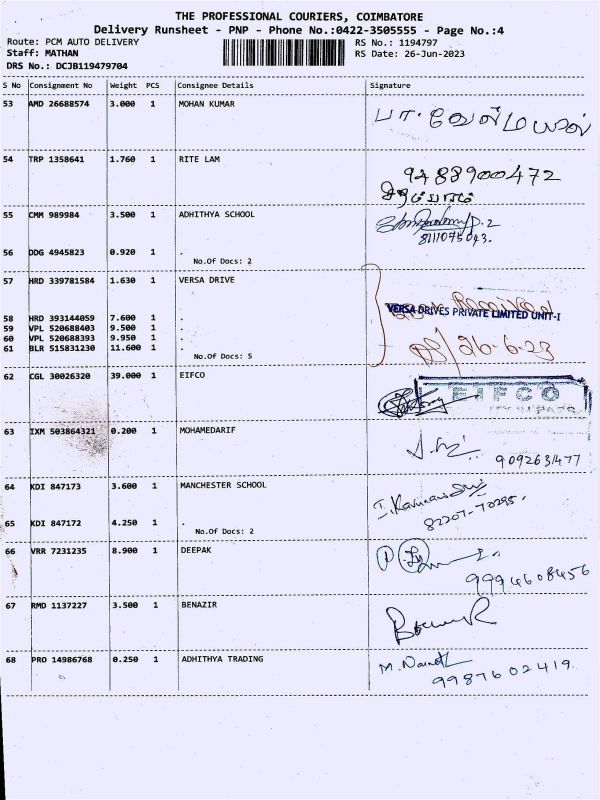 THE PROFESSIONAL COURIERS, COIMBATORE
Delivery Runsheet - PNP - Phone No.:0422-3505555 - Page No.:4
Route: PCM AUTO DELIVERY RS No.: 1194797
Staff: MATHAN RS Date: 26-Jun-2023
DRS No.: DCJB119479704
S No Consignment No Weight PCS Consignee Details Signature
53 AMD 26688574 3.000 1 MOHAN KUMAR
54 TRP 1358641 1.760 1 RITE LAM
9488900472
55 CMM 989984 3.500 1 ADHITHYA SCHOOL
8111075043.
56 DDG 4945823 0.920 1 .
No.Of Docs: 2
57 HRD 339781584 1.630 1 VERSA DRIVE
VERSA DRIVES PRIVATE LIMITED UNIT-I
58 HRD 393144059 7.600 1 .
59 VPL 520688403 9.500 1 .
60 VPL 520688393 9.950 1 .
61 BLR 515831230 11.600 1 .
26-6-23
No.Of Docs: 5
62 CGL 30026320 39.000 1 EIFCO
EIFCO
63 IXM 503864321 0.200 1 MOHAMEDARIF
9092631477
64 KDI 847173 3.600 1 MANCHESTER SCHOOL
82207-70295.
65 KDI 847172 4.250 1 .
No.Of Docs: 2
66 VRR 7231235 8.900 1 DEEPAK
9994608456
67 RMD 1137227 3.500 1 BENAZIR
68 PRO 14986768 0.250 1 ADHITHYA TRADING
99876 02419